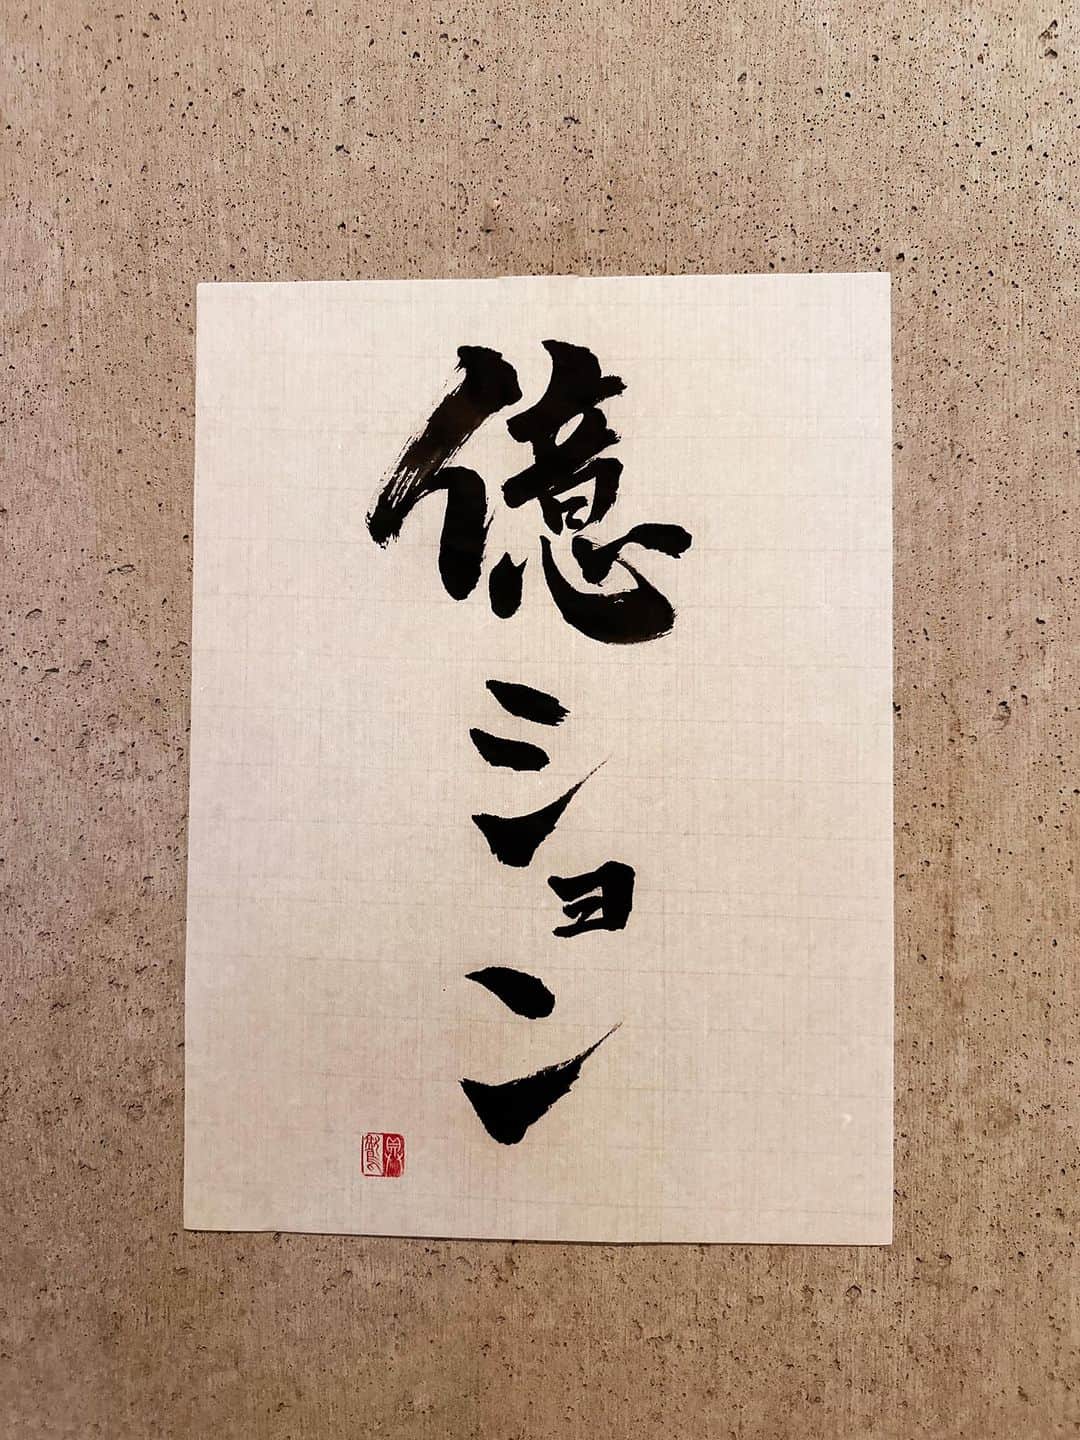 億ション